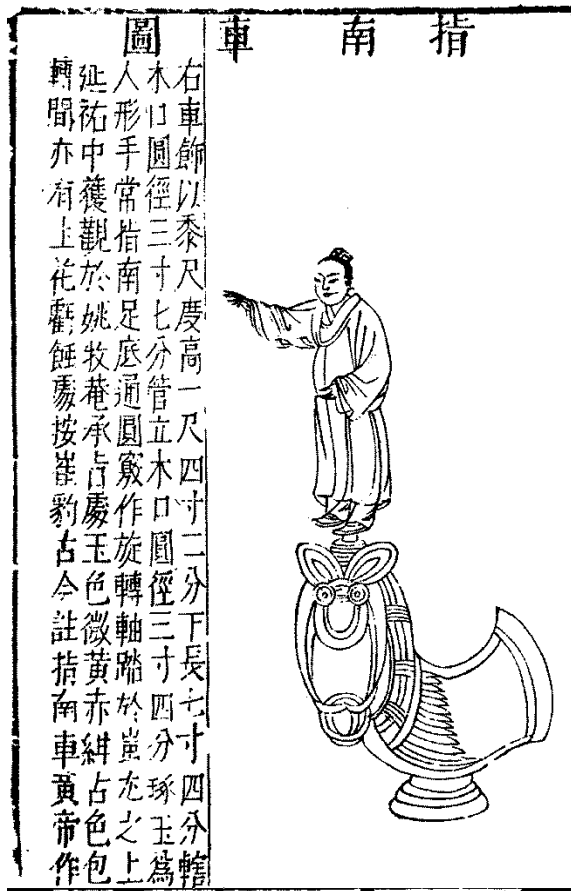 指南車圖
右車飾以黍尺度高一尺四寸二分下長七寸四分轄
木口圓徑三寸七分管立木口圓徑三寸四分琢玉爲
人形手常指南足底通圓竅作旋轉軸踏於蚩尤之上
延祐中獲觀於姚牧菴承旨處玉色微黃赤紺古色包
轉間亦有土花虧蝕處按崔豹古今註指南車黃帝作